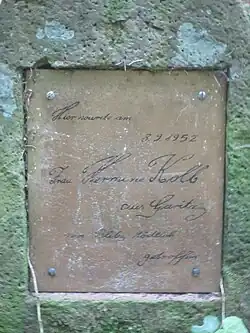 Hier wurde am
8.9.1952
Frau Hermine Kolb
aus Garitz
vom Blitz
getroffen